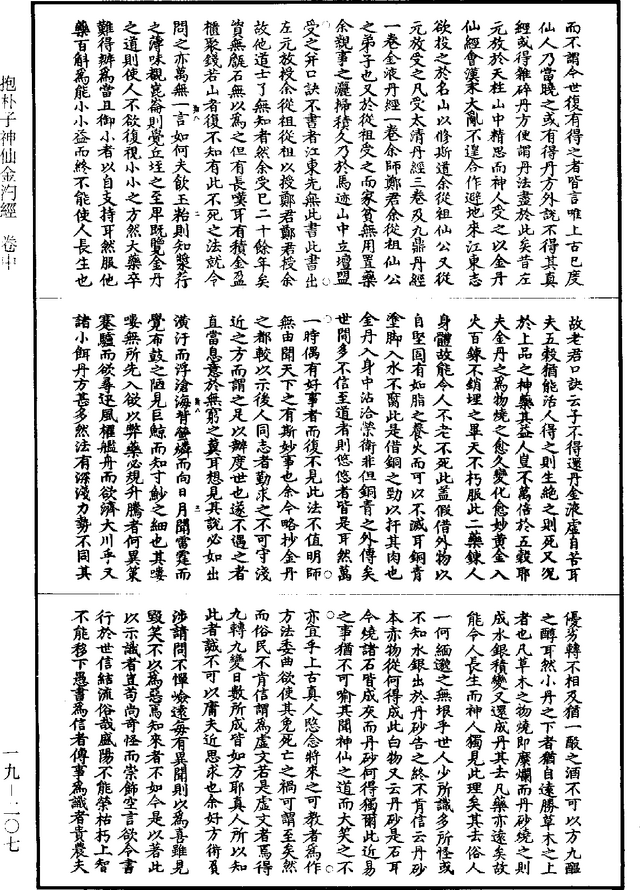 而不謂今世復有得之者皆言唯上古已度
仙人乃當曉之或有得丹方外說不得其真
經或得雜碎丹方便謂丹法盡於此矣昔左
元放於天柱山中精思而神人受之以金丹
仙經會漢末大亂不遑合作避地來江東志
欲投之於名山以修斯道余從祖仙公又從
元放受之凡受太清丹經三卷及九鼎丹經
一卷金液丹經一卷余師鄭君余從祖仙公
之弟子也又於從祖受之而家貧無用置藥
余親事之灑掃積久乃於馬迹山中立壇盟
受之并口訣不書者江東先無此書書出
左元放授余從祖從祖以授鄭君鄭君授余
故他道士了無知者然余受已二十餘年矣
資無甔石無以為之但有長嘆耳有積金盈
櫃聚錢若山者復不知有此不死之法就令
問之亦萬無一言如何夫飲玉粭則知漿荇
之薄味覩崑崙則覺丘垤之至卑既覽金丹
之道則使人不欲復視小小之方然大藥卒
難得辦為當且御小者以自支持耳然服他
藥百斛為能小小益而終不能使人長生也
故老君口訣云子不得還丹金液虛自苦耳
夫五穀猶能活人得之則生絕之則死又況
於上品之神藥其益人豈不萬倍於五穀耶
夫金丹之為物燒之愈久變化愈妙黃金入
火百鍊不銷埋之畢天不朽服此二藥鍊人
身體故能令人不老不死此蓋假借外物以
自堅固有如脂之養火而可以不滅耳銅青
塗腳入水不腐此是借銅之勁以扞其肉也
金丹入身中沾洽榮衛非但銅青之外傅矣
世間多不信至道者則悠悠者皆是耳然萬
一時偶有好事者而復不見此法不值明師
無由聞天下之有斯妙事也余今略抄金丹
之都較以示後人同志者勤求之不可守淺
近之方而謂之足以辦度世也遂不遇之者
直當息意於無窮之冀耳想見其說必如出
潢汙而浮滄海背螢燐而向日月聞雷霆而
覺布鼓之陋見巨鯨而知寸鈔之細也其嘍
嘍無所先入欲以弊藥必規升騰者何異策
蹇驢而欲尋迅風櫂艦舟而欲濟大川乎又
諸小餌丹方甚多然法有深淺力勢不同其
優劣轉不相及猶一酘之酒不可以方九醞
之醇耳然小丹之下者猶自遠勝草木之上
者也凡草木之物燒即糜爛而丹砂燒之則
成水銀積變又還成丹其去凡藥亦遠矣故
能令人長生而神人獨見此理矣其去俗人
一何緬邈之無垠乎世人少所識多所怪或
不知水銀出於丹砂告之終不肯信云丹砂
本赤物從何得成此白物又云丹砂是石耳
今燒諸石皆成灰而丹砂何得獨爾此近易
之事猶不可喻其聞神仙之道而大笑之不
亦宜乎上古真人愍念將來之可教者為作
方法委曲欲使其免死亡之禍可謂至矣然
而俗民不肯信謂為虛文若是虛文者焉得
九轉九變日數所成皆如方耶真人所以知
此者誠不可以庸夫近思求也余好方術負
涉請問不憚嶮遠每有異聞則以為喜雖見
毀笑不以為惡焉知來者不如今是以著此
以示識者豈苟尚奇怪而崇飾空言欲令書
行於世信結流俗哉盛陽不能榮枯朽上智
不能移下愚書為信者傳事為識者貴農夫
抱朴子神仙金汋經 卷中
一九－二〇七